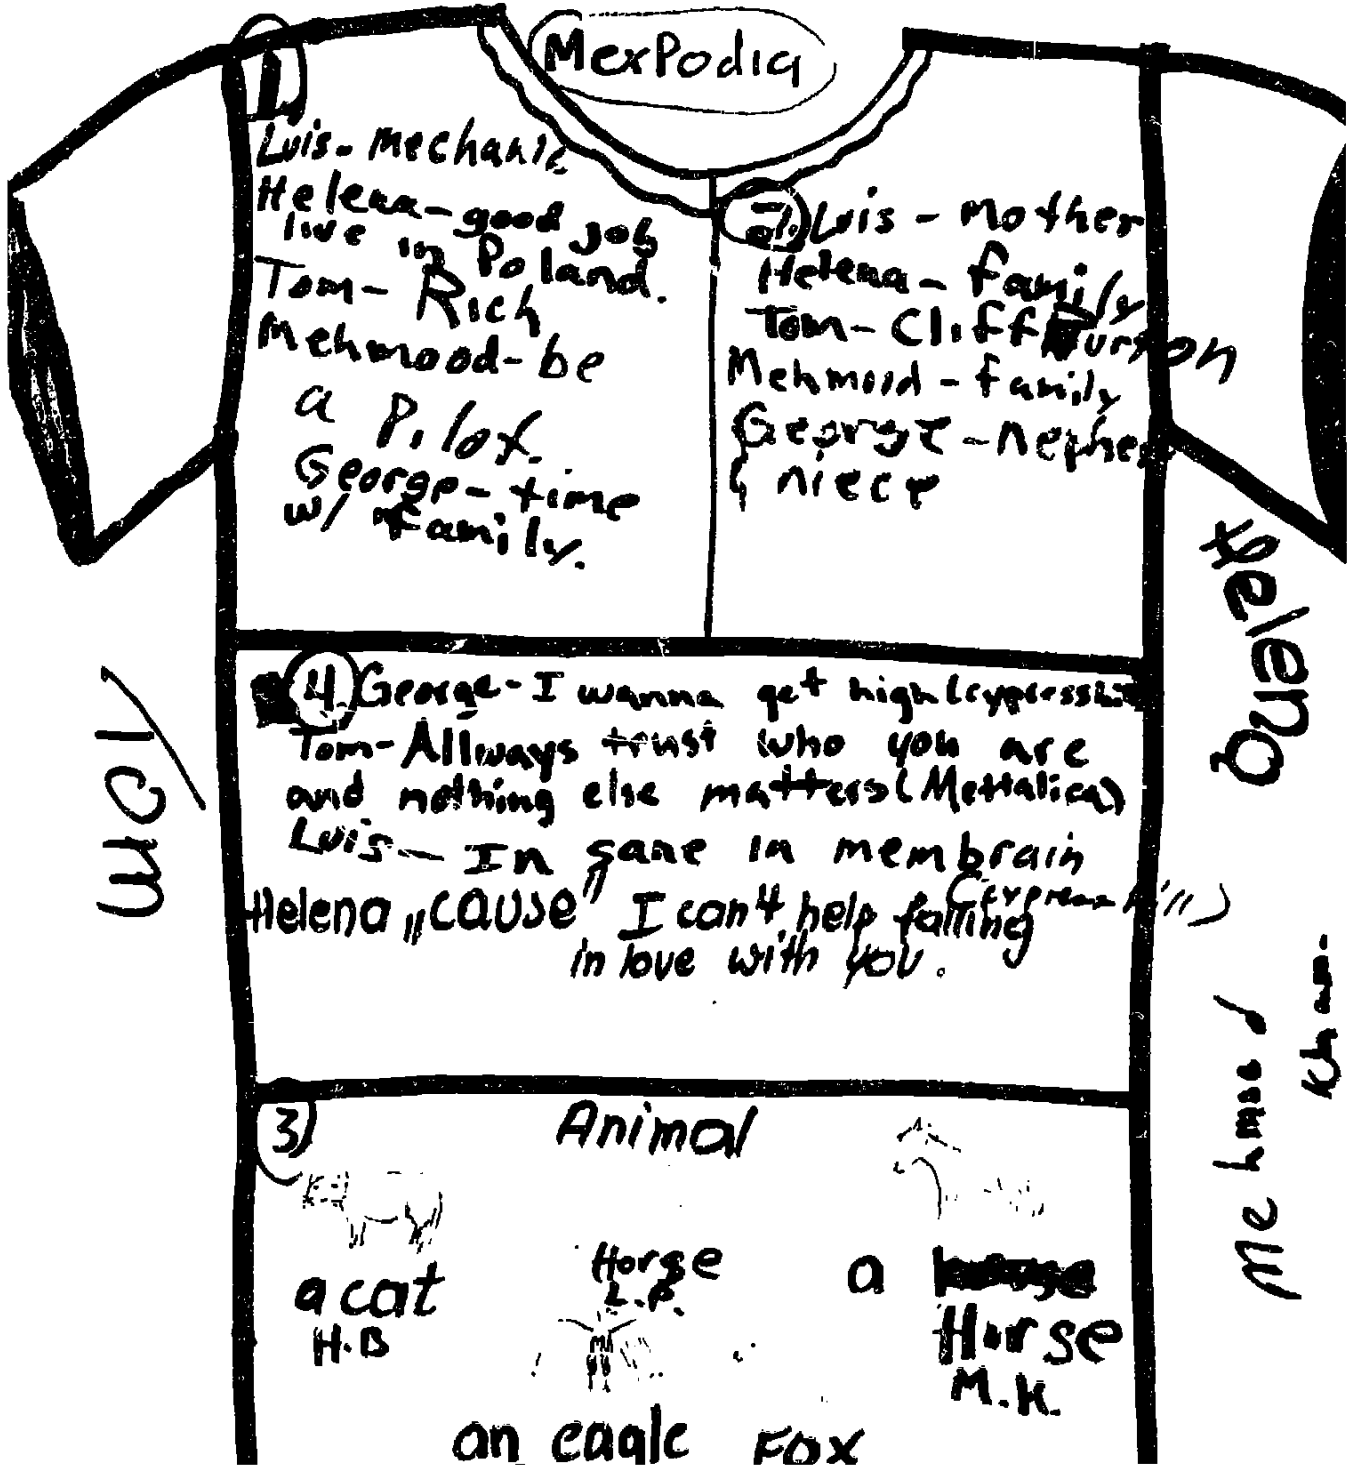 MexPodia
1.
Luis- mechanic
Helena- good job
live in Poland.
Tom- Rich
Mehmood- be
a Pilot.
George- time
w/ family.
2. Luis - Mother
Helena - family
Tom - Cliff Burton
Mehmood - family
George - nephew
& niece
4. George - I wanna get high (cypress hill
Tom - Allways trust who you are
and nothing else matters (Mettalica)
Luis - In sane in membrain
(Cypress Hill)
Helena „cause" I can't help falling
in love with you.
3)
Animal
a cat
H.B
Horse
L.P.
a
Horse
M.K.
an eagle
Fox
Tom
Helena
Mehmood
Khan.